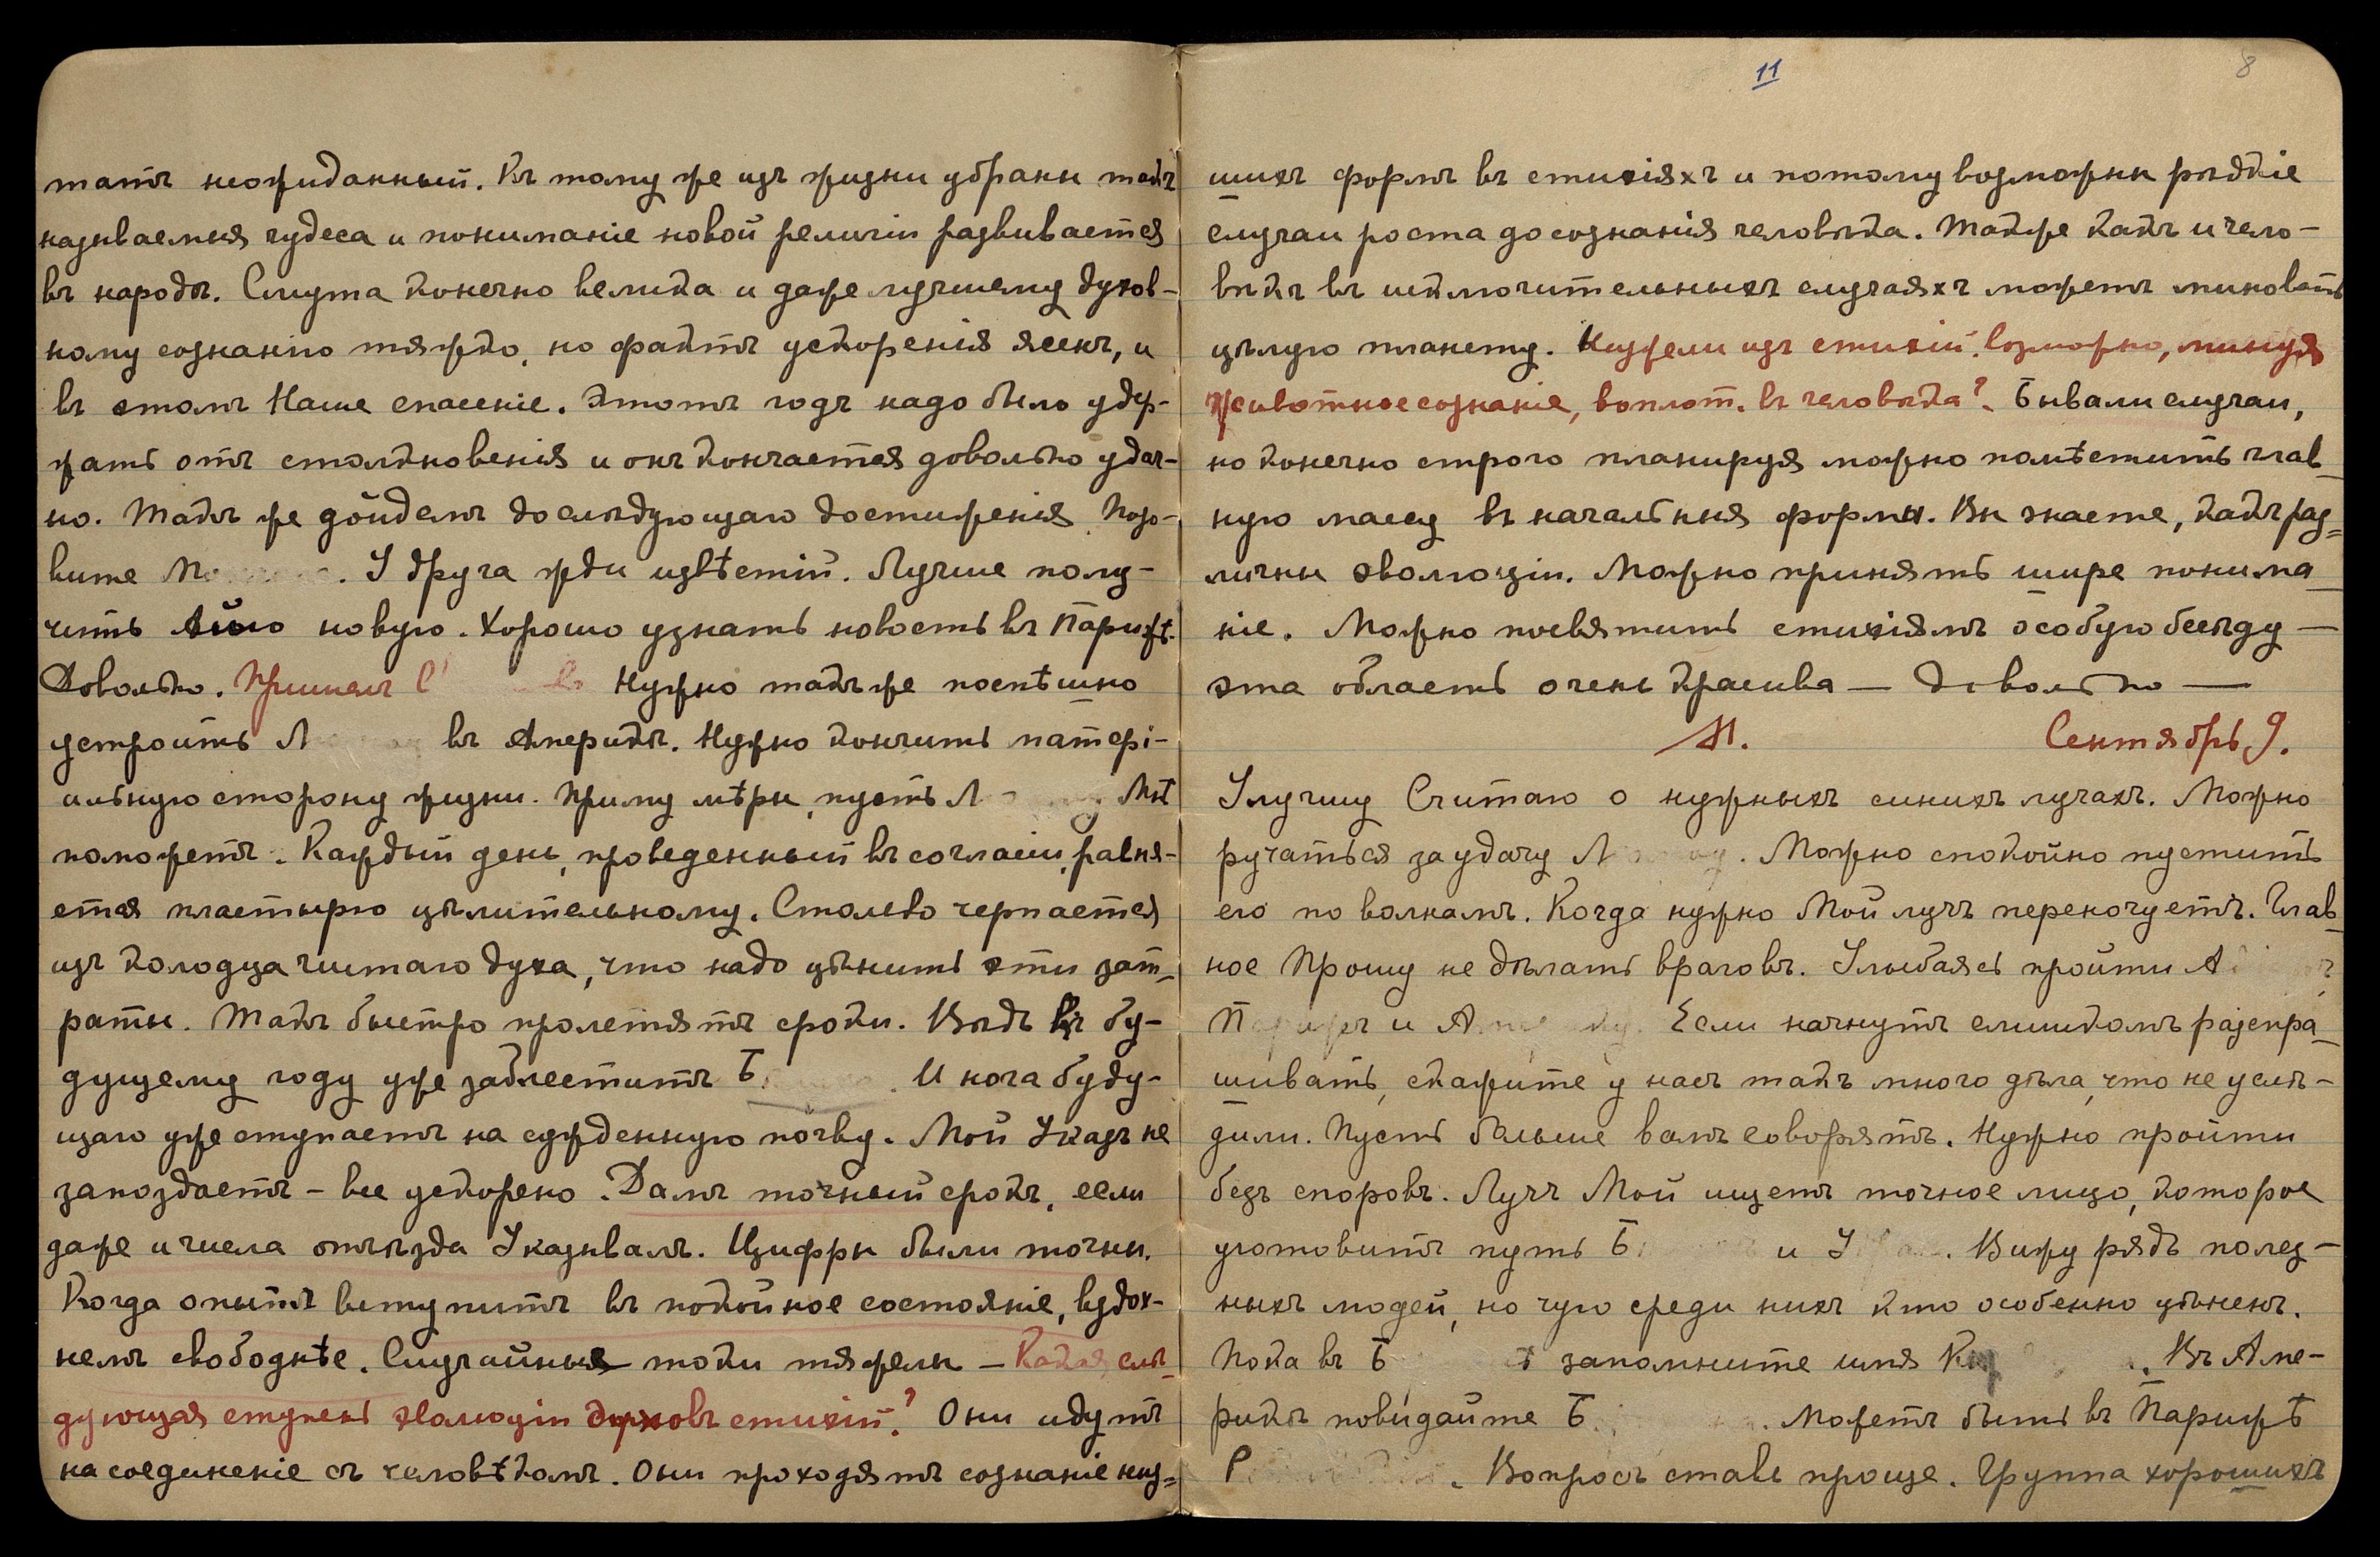 татъ неожиданный. Къ тому же изъ жизни убраны такъ
называемыя чудеса и пониманіе новой религіи развивается
въ народѣ. Смута конечно велика и даже лучшему духов-
ному сознанію тяжко, но фактъ ускоренія ясенъ, и
въ этомъ Наше спасеніе. Этотъ годъ надо было удер-
жать отъ столкновенія и онъ кончается довольно удач-
но. Такъ же дойдемъ до слѣдующаго достиженія. Позо-
вите М. У друга жди извѣстій. Лучше полу-
чить новую. Хорошо узнать новость въ Парижѣ.
Довольно. Пришелъ Нужно также поспѣшно
устроить Л въ Америкѣ. Нужно кончить матері-
альную сторону жизни. Приму мѣры, пусть Л Мнѣ
поможетъ. Каждый день, проведенный въ согласіи, равня-
ется пластырю цѣлительному. Столько черпается
изъ колодца чистаго духа, что надо цѣнить эти зат-
раты. Такъ быстро пролетятъ сроки. Вѣдь къ бу-
дущему году уже заблеститъ Б. И нога буду-
щаго уже ступаетъ на сужденную почву. Мой Указъ не
запоздаетъ – все ускорено. Далъ точный срокъ, если
даже и числа отъѣзда Указывалъ. Цифры были точны.
Когда опытъ вступитъ въ покойное состояніе, вздох-
немъ свободнѣе. Случайные токи тяжелы – Какая слѣ-
дующая ступень эволюціи духовъ стихій? Они идутъ
на соединеніе съ человѣкомъ. Они проходятъ сознаніе низ-
11
8
шихъ формъ въ стихіяхъ и потому возможны рѣдкіе
случаи роста до сознанія человѣка. Также какъ и чело-
вѣкъ въ исключительныхъ случаяхъ можетъ миновать
цѣлую планету. Неужели изъ стихій возможно, минуя
животное сознаніе, воплот. въ человѣка? Бывали случаи,
но конечно строго планируя можно помѣстить глав-
ную массу въ начальныя формы. Вы знаете, какъ раз-
личны эволюціи. Можно принять шире понима-
ніе. Можно посвятить стихіямъ особую бесѣду —
эта область очень красива — довольно —
М. Сентябрь 9.
Улучшу Считаю о нужныхъ синихъ лучахъ. Можно
ручаться за удачу Л. Можно спокойно пустить
его по волнамъ. Когда нужно Мой лучъ переночуетъ. Глав-
ное Прошу не дѣлать враговъ. Улыбаясь пройти А
П и А. Если начнутъ слишкомъ разспра-
шивать, скажите у насъ такъ много дѣла, что не услѣ-
дили. Пусть больше вамъ говорятъ. Нужно пройти
безъ споровъ. Лучъ Мой ищетъ точное лицо, которое
уготовитъ путь Б и У. Вижу рядъ полез-
ныхъ людей, но чую среди нихъ кто особенно цѣненъ.
Пока въ Б запомните имя К. Въ Аме-
рикѣ повидайте Б. Можетъ быть въ Парижѣ
Р. Вопросъ ставь проще. Группа хорошихъ